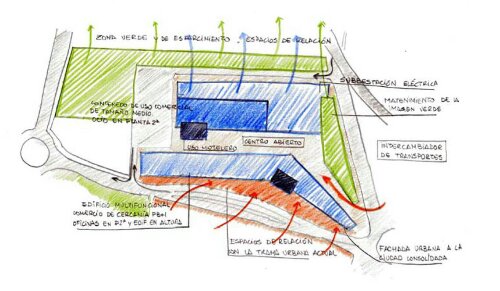 ZONA VERDE Y DE ESPARCIMIENTO - ESPACIOS DE RELACIÓN
SUBESTACIÓN ELÉCTRICA
CONTENEDO DE USO COMERCIAL
DE TAMAÑO MEDIO.
OCIO EN PLANTA 2ª
MANTENIMIENTO DE LA
IMAGEN VERDE
CENTRO ABIERTO
USO HOTELERO
INTERCAMBIADOR
DE TRANSPORTES
EDIFICIO MULTIFUNCIONAL
COMERCIO DE CERCANÍA PB+1
OFICINAS EN P2ª Y EDIF EN ALTURA
ESPACIOS DE RELACIÓN
CON LA TRAMA URBANA ACTUAL
FACHADA URBANA A LA
CIUDAD CONSOLIDADA